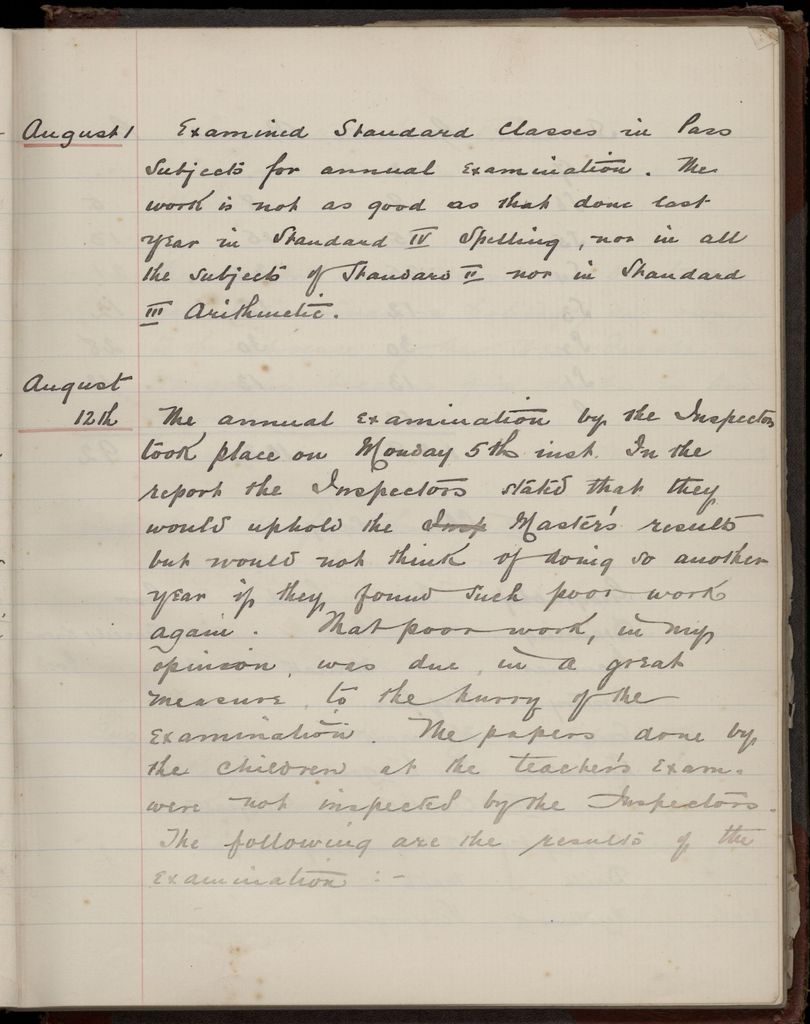 August 1 Examined Standard Classes in Pass
Subjects for annual Examination. The
work is not as good as that done last
year in Standard IV Spelling, nor in all
the subjects of Standard II nor in Standard
III Arithmetic.
August
12th The annual Examination by the Inspectors
took place on Monday 5th inst. In the
report the Inspectors stated that they
would uphold the Insp Master's results
but would not think of doing so another
year if they found such poor work
again. That poor work, in my
opinion, was due, in a great
measure, to the hurry of the
Examination. The papers done by
the children at the teacher's Exam.
were not inspected by the Inspectors.
The following are the results of the
Examination :-